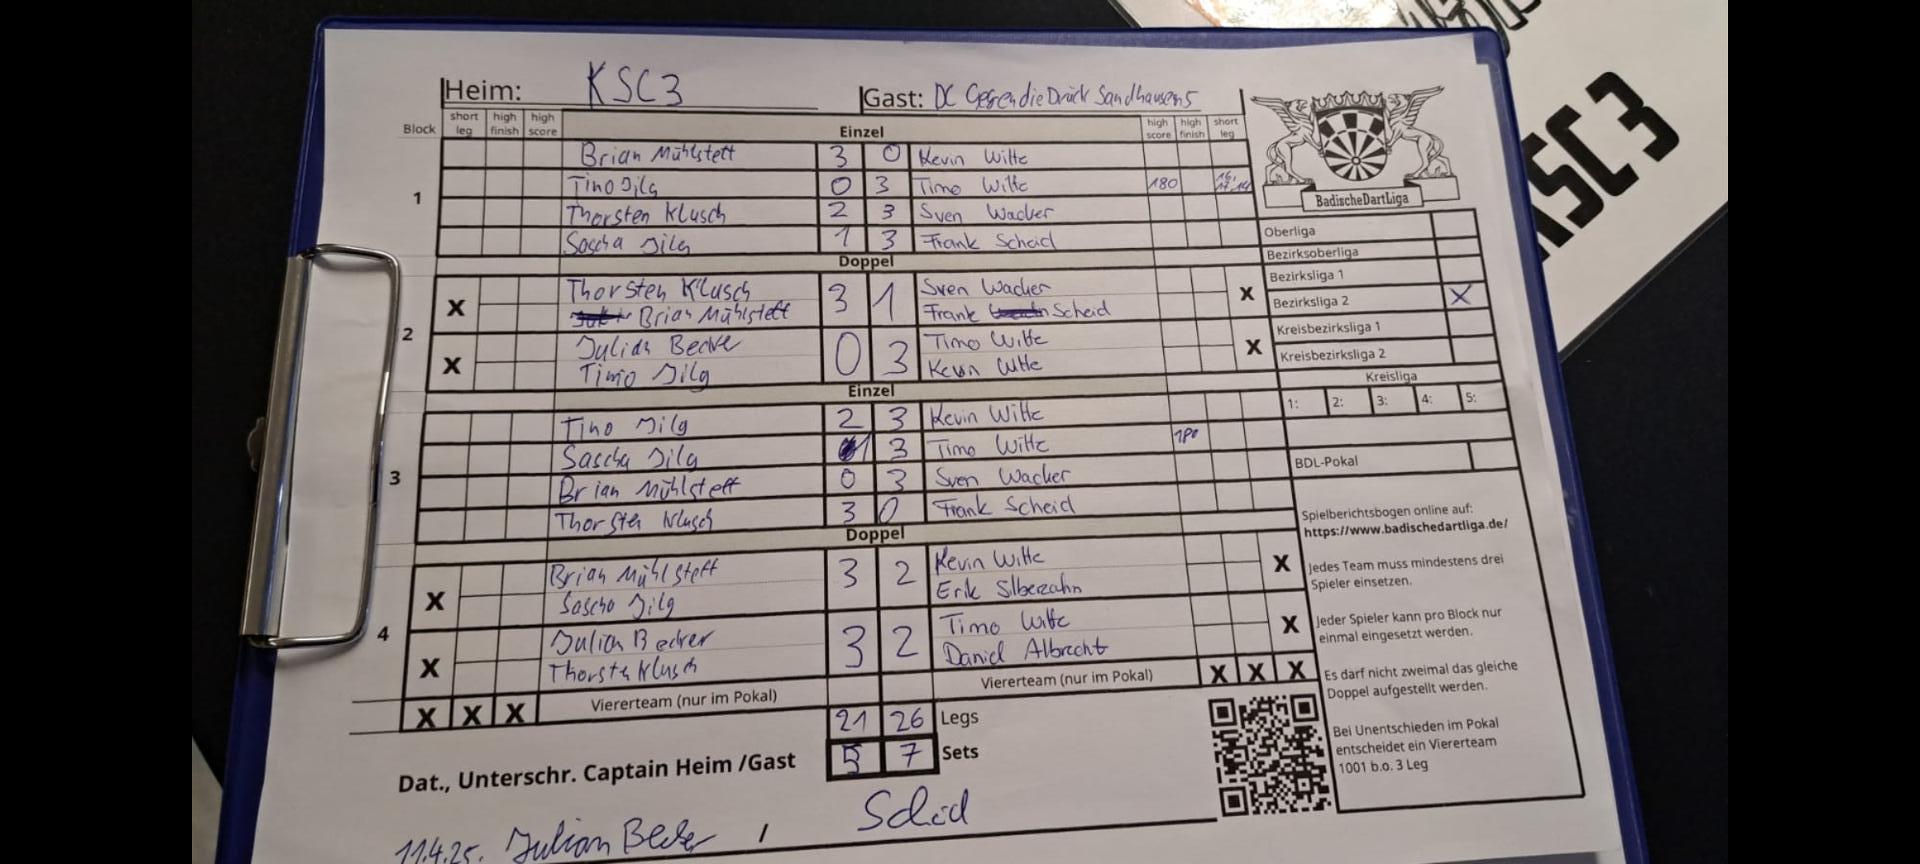 Heim: KSC3 Gast: DC GegendieDrück Sandhausen5
Block short leg high finish high score Einzel high score high finish short leg
1
Brian Mühlstett 3 0 Kevin Witte
Tino Jilg 0 3 Timo Witte 180
Thorsten Klusch 2 3 Sven Wacker
Sascha Jilg 1 3 Frank Scheid
Doppel
2
X Thorsten Klusch 3 1 Sven Wacker X
Brian Mühlstett Frank Scheid
X Julian Becker 0 3 Timo Witte X
Timo Jilg Kevin Witte
Einzel
3
Tino Jilg 2 3 Kevin Witte
Sascha Jilg 1 3 Timo Witte 180
Brian Mühlstett 0 3 Sven Wacker
Thorsten Klusch 3 0 Frank Scheid
Doppel
4
X Brian Mühlstett 3 2 Kevin Witte X
Sascha Jilg Erik Silberzahn
X Julian Becker 3 2 Timo Witte X
Thorsten Klusch Daniel Albrecht
X X X Viererteam (nur im Pokal) Viererteam (nur im Pokal) X X X
21 26 Legs
5 7 Sets
Dat., Unterschr. Captain Heim /Gast
11.4.25. Julian Becker / Scheid
BadischeDartLiga
Oberliga
Bezirksoberliga
Bezirksliga 1
Bezirksliga 2 X
Kreisbezirksliga 1
Kreisbezirksliga 2
Kreisliga
1: 2: 3: 4: 5:
BDL-Pokal
Spielberichtsbogen online auf:
https://www.badischedartliga.de/
Jedes Team muss mindestens drei
Spieler einsetzen.
Jeder Spieler kann pro Block nur
einmal eingesetzt werden.
Es darf nicht zweimal das gleiche
Doppel aufgestellt werden.
Bei Unentschieden im Pokal
entscheidet ein Viererteam
1001 b.o. 3 Leg
KSC 3